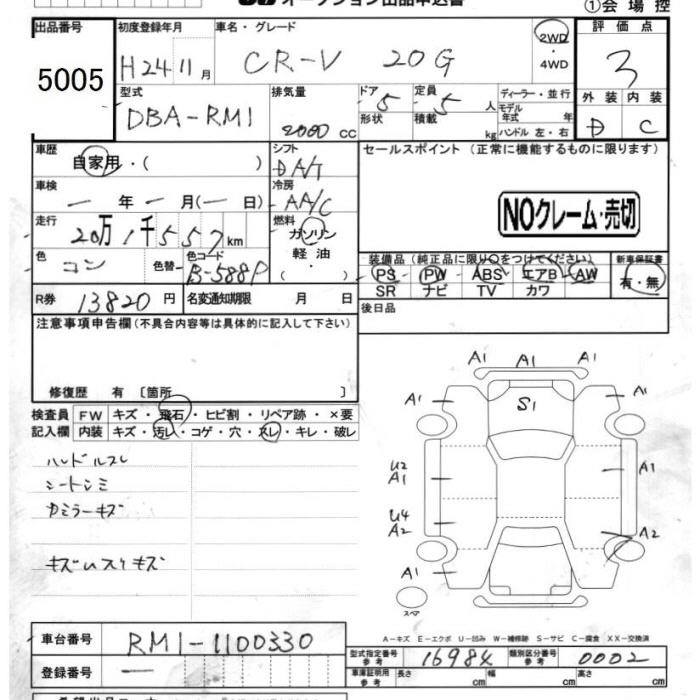 オークション出品申込書
①会場控
出品番号 初度登録年月 車名・グレード 評価点
5005 H24 11月 CR-V 20G 2WD・4WD 3
型式 排気量 ドア 定員 ディーラー・並行 外装 内装
DBA-RM1 2000 cc 5 5人 モデル年式 年 D C
形状 積載 kg ハンドル 左・右
車歴 シフト セールスポイント (正常に機能するものに限ります)
自家用・( ) DA/T
車検 冷房
ー年ー月(ー日) AA/C
NOクレーム・売切
走行 燃料
20万1千557km ガソリン
軽油・( )
色 色替 色コード 装備品(純正品に限り○をつけてください) 新車保証書
コン B-588P PS PW ABS エアB AW 有・無
SR ナビ TV カワ
R券 13820円 名変通知期限 月 日 後日品
注意事項申告欄(不具合内容等は具体的に記入して下さい)
修復歴 有 〔箇所 〕
検査員 FW キズ・飛石・ヒビ割・リペア跡・×要
記入欄 内装 キズ・汚レ・コゲ・穴・スレ・キレ・破レ
ハンドルスレ
シートシミ
キズ
キズ
A1 A1 A1
A1 S1 A1
U2
A1 A1
U4
A2 A2
A1
スペア
A-キズ E-エクボ U-凹み W-補修跡 S-サビ C-腐食 XX-交換済
車台番号 RM1-1100330
型式指定番号 参考 16984 類別区分番号 参考 0002
登録番号 ー
車庫証明用 参考 長さ cm 幅 cm 高さ cm